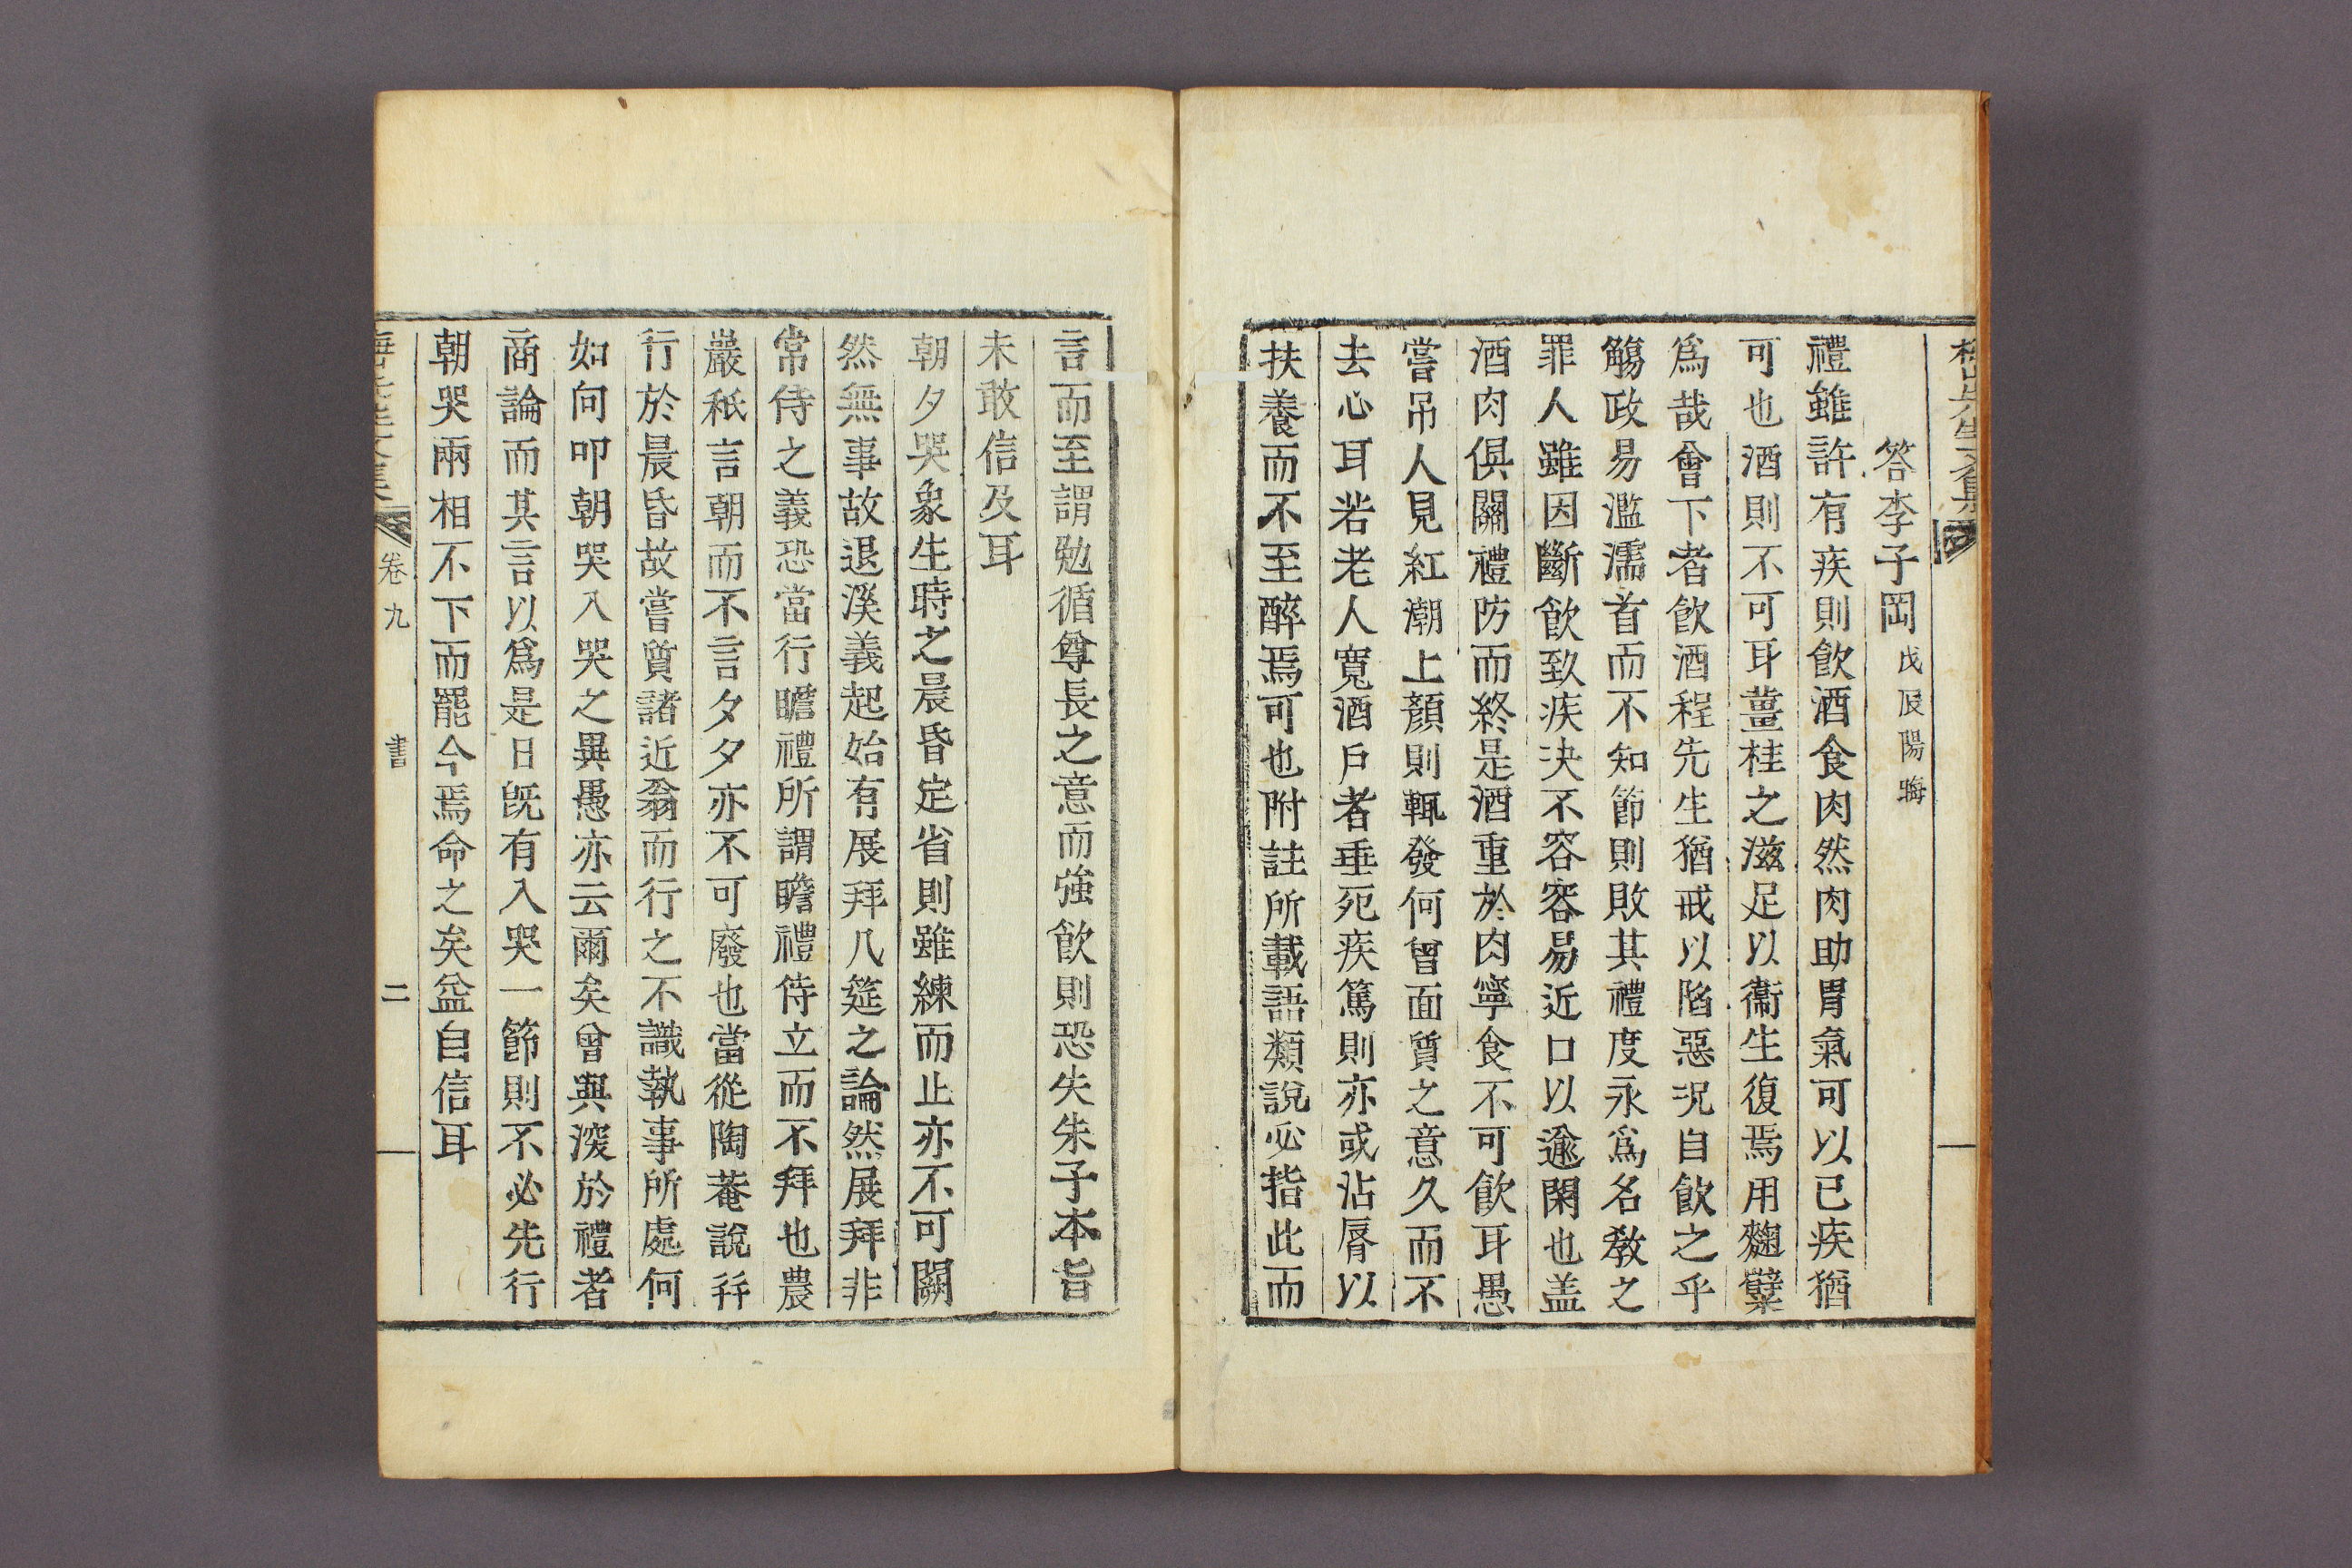 答李子岡 戊辰陽晦
禮雖許有疾則飮酒食肉然肉助胃氣可以已疾猶
可也酒則不可耳薑桂之滋足以衞生復焉用麴糱
爲哉會下者飮酒程先生猶戒以陷惡况自飮之乎
觴政易濫濡首而不知節則敗其禮度永爲名敎之
罪人雖因斷飮致疾决不容容易近口以逾閑也盖
酒肉俱關禮防而終是酒重於肉寧食不可飮耳愚
嘗吊人見紅潮上顔則輒發何曾面質之意久而不
去心耳若老人寬酒戶者垂死疾篤則亦或沾脣以
扶養而不至醉焉可也附註所載語類說必指此而
言而至謂勉循尊長之意而強飮則恐失朱子本旨
未敢信及耳
朝夕哭象生時之晨昏定省則雖練而止亦不可闕
然無事故退溪義起始有展拜几筵之論然展拜非
常侍之義恐當行瞻禮所謂瞻禮侍立而不拜也農
巖秖言朝而不言夕夕亦不可廢也當從陶菴說幷
行於晨昏故嘗質諸近翁而行之不識執事所處何
如向叩朝哭入哭之異愚亦云爾矣曾與深於禮者
商論而其言以爲是日旣有入哭一節則不必先行
朝哭兩相不下而罷今焉命之矣益自信耳
卷九 書 二